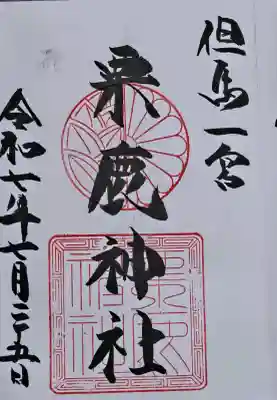 但馬一宮
粟鹿神社
令和七年七月二五日